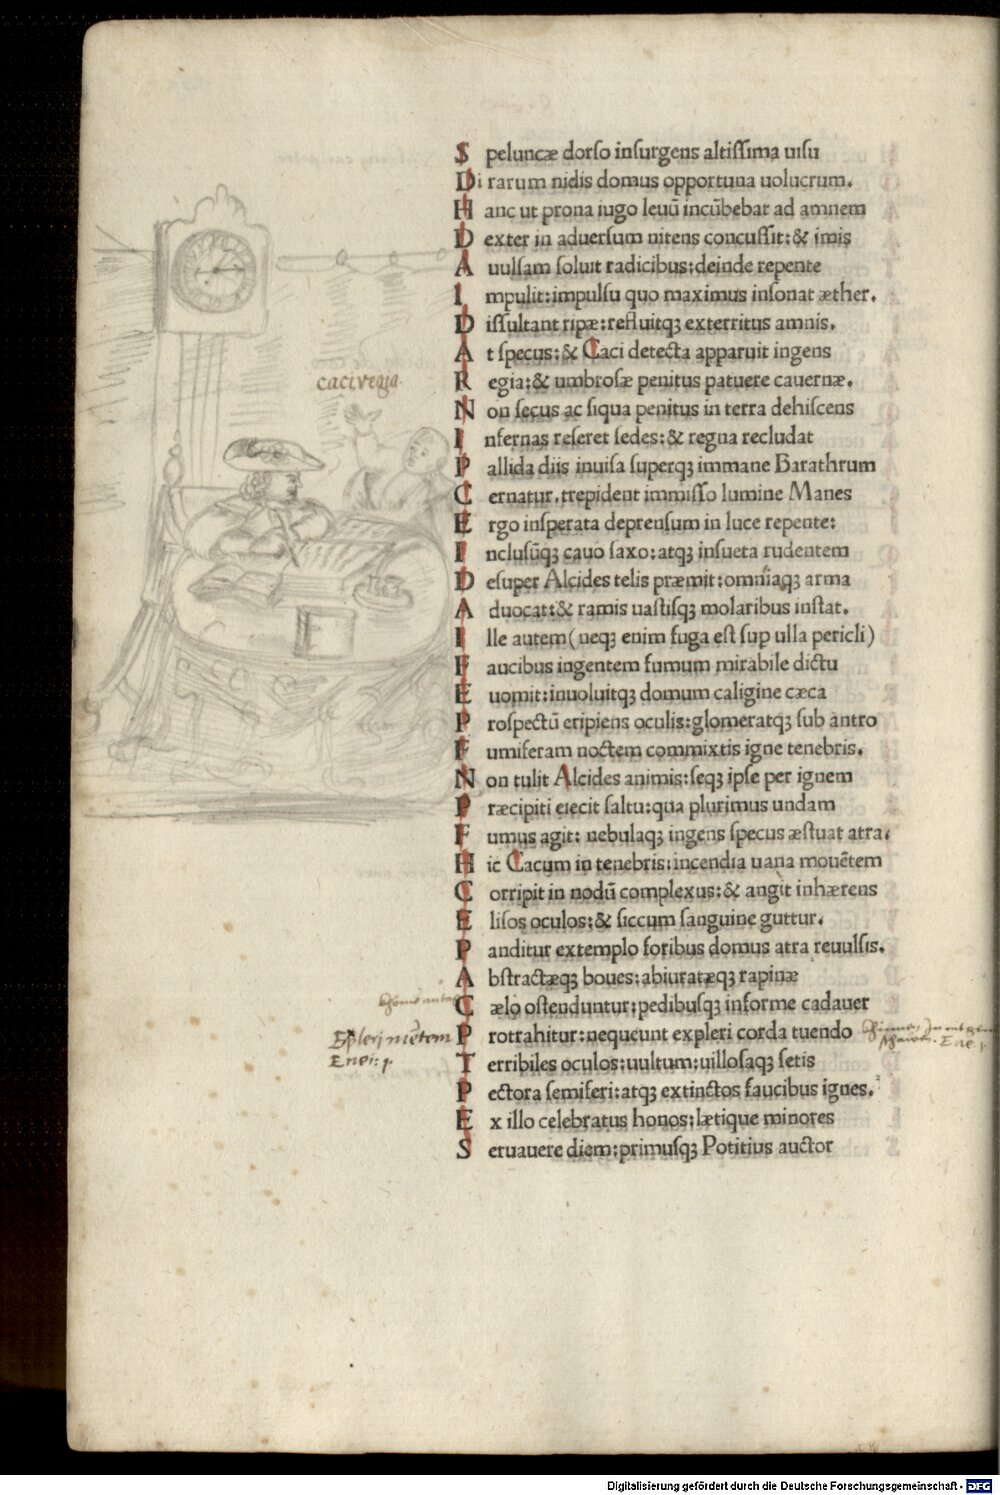 S peluncæ dorso insurgens altissima uisu
Di rarum nidis domus opportuna uolucrum.
H anc ut prona iugo leuū incūbebat ad amnem
D exter in aduersum nitens concussit:& imis
A uulsam soluit radicibus:deinde repente
I mpulit:impulsu quo maximus insonat æther.
D issultant ripæ:refluitqꝫ exterritus amnis.
A t specus:& Caci detecta apparuit ingens
caci regia
R egia:& umbrosæ penitus patuere cauernæ.
N on secus ac siqua penitus in terra dehiscens
I nfernas reseret sedes:& regna recludat
P allida diis inuisa superqꝫ immane Barathrum
C ernatur.trepident immisso lumine Manes
E rgo insperata deprensum in luce repente:
I nclusūqꝫ cauo saxo:atqꝫ insueta rudentem
D esuper Alcides telis præmit:omniaqꝫ arma
A duocat:& ramis uastisqꝫ molaribus instat.
I lle autem(neqꝫ enim fuga est sup ulla pericli)
F aucibus ingentem fumum mirabile dictu
E uomit:inuoluitqꝫ domum caligine cæca
P rospectū eripiens oculis:glomeratqꝫ sub antro
F umiferam noctem commixtis igne tenebris.
N on tulit Alcides animis:seqꝫ ipse per ignem
P ræcipiti eiecit saltu:qua plurimus undam
F umus agit: nebulaqꝫ ingens specus æstuat atra.
H ic Cacum in tenebris:incendia uana mouētem
C orripit in nodū complexus:& angit inhærens
E lisos oculos:& siccum sanguine guttur.
P anditur extemplo foribus domus atra reuulsis.
A bstractæqꝫ boues:abiuratæqꝫ rapinæ
C ælo ostenduntur:pedibusqꝫ informe cadauer
P rotrahitur:nequeunt expleri corda tuendo
Expleri mētem
Enei: 1.
T erribiles oculos:uultum:uillosaqꝫ setis
P ectora semiferi:atqꝫ extinctos faucibus ignes.
E x illo celebratus honos:lætique minores
S eruauere diem:primusqꝫ Potitius auctor
Digitalisierung gefördert durch die Deutsche Forschungsgemeinschaft - DFG